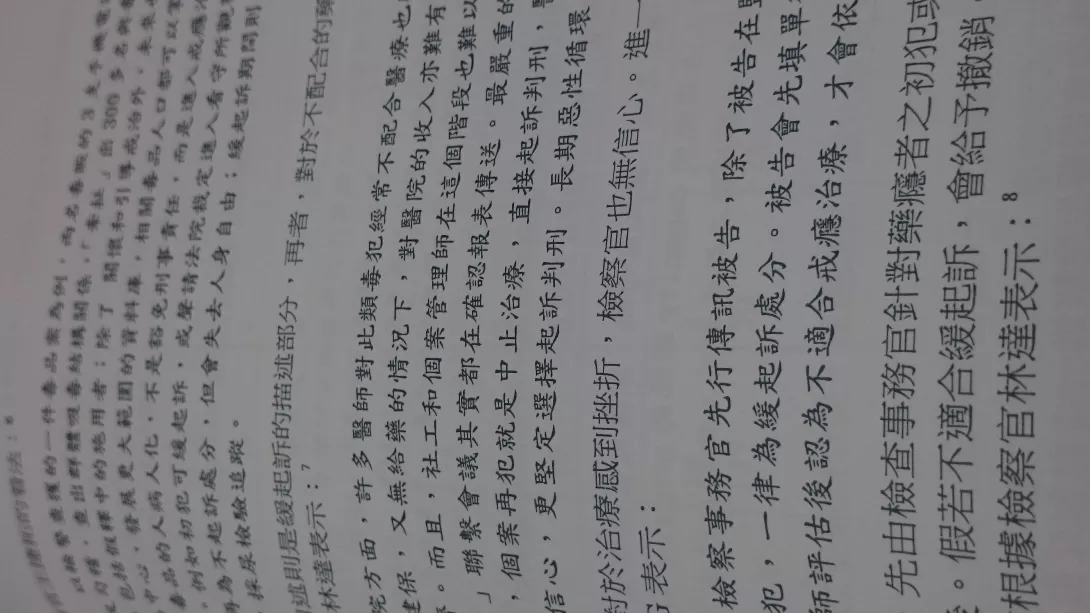 以檢警查獲的一件毒品案為例，兩名毒販的3支手機電
查出群體吸毒結構關係，「毒社」出300多名與
包括假釋中的施用者；除了 關懷和引導戒治外，未來
中心，發展更大範圍的資料庫，相關毒品人口都可以
毒品的人病人化，不是豁免刑事責任，而是進入戒癮治
，例如初犯可緩起訴，或聲請法院裁定進入看守所觀
再為不起訴處分，但會失去人身自由；緩起訴期間則
採尿檢驗追蹤。
述則是緩起訴的描述部分，再者，對於不配合的
林達表示：7
院方面，許多醫師對此類毒犯經常不配合醫療也
健保，又無給藥的情況下，對醫院的收入亦難有
。而且，社工和個案管理師在這個階段也難以
」聯繫會議其實都在確認報表傳送。最嚴重的
，個案再犯就是中止治療，直接起訴判刑，
信心，更堅定選擇起訴判刑。長期惡性循環
對於治療感到挫折，檢察官也無信心。進一
表示：
檢察事務官先行傳訊被告，除了被告在
犯，一律為緩起訴處分。被告會先填單
師評估後認為不適合戒癮治療，才會依
先由檢查事務官針對藥癮者之初犯或
。假若不適合緩起訴，會給予撤銷，
根據檢察官林達表示：8